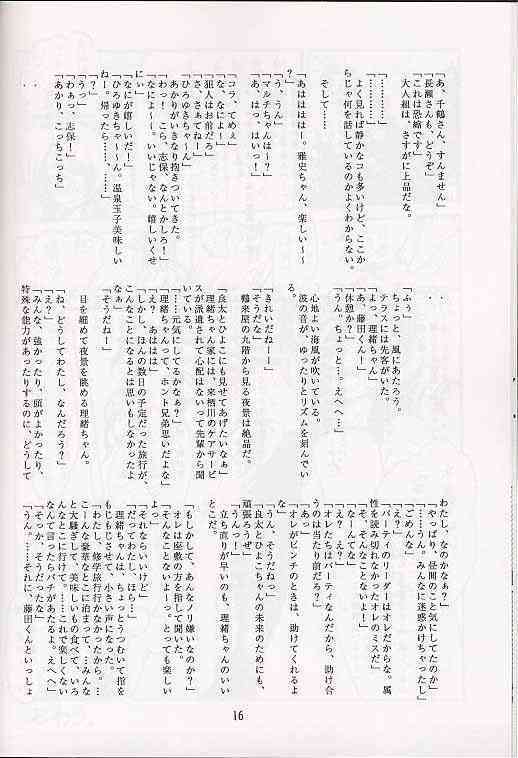 「あ、千鶴さん、すんません」
「長瀬さんも、どうぞ」
「これは恐縮です」
大人組は、さすがに上品だな。
「…………」
「…………」
よく見れば静かなコも多いけど、ここか
らじゃ何を話しているのかよくわからない。
そして……
「あはははは。雅史ちゃん、楽しい～～
？」
「う、うん」
「マルチちゃんは～？」
「あ、はっ、はいっ！」
「コラ、てめぇ」
「な、なによ！」
「犯人はお前だろ」
「さ、さぁてねー」
「ひろゆきちゃ～ん」
あかりがいきなり抱きついてきた。
「わっ！こら、志保、なんとかしろ！」
「なによ～～、いいじゃない。嬉しいくせ
にぃ」
「なにが嬉しいだ！」
「ひろゆきちゃ～～ん。温泉玉子美味しい
ねー。帰ったら……、……」
「？」
「うっ」
「わぁっ、志保！」
「あかり、こっちこっち」
・
・
「ふぅ」
ちょっと、風にあたろう。
テラスには先客がいた。
「よっ、理緒ちゃん」
「あ、藤田くん！」
「休憩か？」
「うん、ちょっと…。えへへ…」
心地よい海風が吹いている。
波の音が、ゆったりとリズムを刻んでい
る。
「きれいだねーー」
「そうだな」
鶴来屋の九階から見る夜景は絶品だ。
「良太とひよこにも見せてあげたいなぁ」
理緒ちゃん家には、来栖川のケアサービ
スが派遣されて心配はないって先輩から聞
いている。
「……元気にしてるかなぁ？」
「理緒ちゃんって、ホント兄弟思いだよな」
「え？あははは」
「しかし、ほんの数日の予定だった旅行が、
こんなことになるとは思いもしなかったよ
なぁ」
「そうだねー」
目を細めて夜景を眺める理緒ちゃん。
「ね、どうしてわたし、なんだろう？」
「え？」
「みんな、強かったり、頭がよかったり、
特殊な能力があったりするのに、どうして
わたし、なのかなぁ？」
「やっぱり、昼間のこと気にしてたのか」
「……うん。みんなに迷惑かけちゃったし」
「ごめんな」
「えっ？」
「パーティのリーダーはオレだからな。属
性を読み切れなかったオレのミスだ」
「そ、そんなことないよ！」
「なーんてな」
「え？え？」
「オレたちはパーティなんだから、助け合
うのは当たり前だろ？」
「あっ」
「オレがピンチのときは、助けてくれるよ
な」
「うん、そうだねっ」
「良太とひよこちゃんの未来のためにも、
頑張ろうぜ」
「うんっ！」
立ち直りが早いのも、理緒ちゃんのいい
とこだ。
「もしかして、あんなノリ嫌いなのか？」
オレは座敷の方を指して聞いた。
「そんなことないよーっ。とっても楽しい
よっ」
「それならいいけど」
「だってわたし、ほら…」
理緒ちゃんは、ちょっとうつむいて指を
もじもじさせて、小さい声になった。
「わたし、修学旅行行かなかったから…。
こーんな豪華なとこに泊まって…みんな
と大騒ぎして、美味しいもの食べて、いろ
んなとこに行けて。……これで楽しくない
なんて言ったらバチがあたるよ。えへへ」
「そっか。そうだったな」
「うん。……それに、藤田くんといっしょ
16